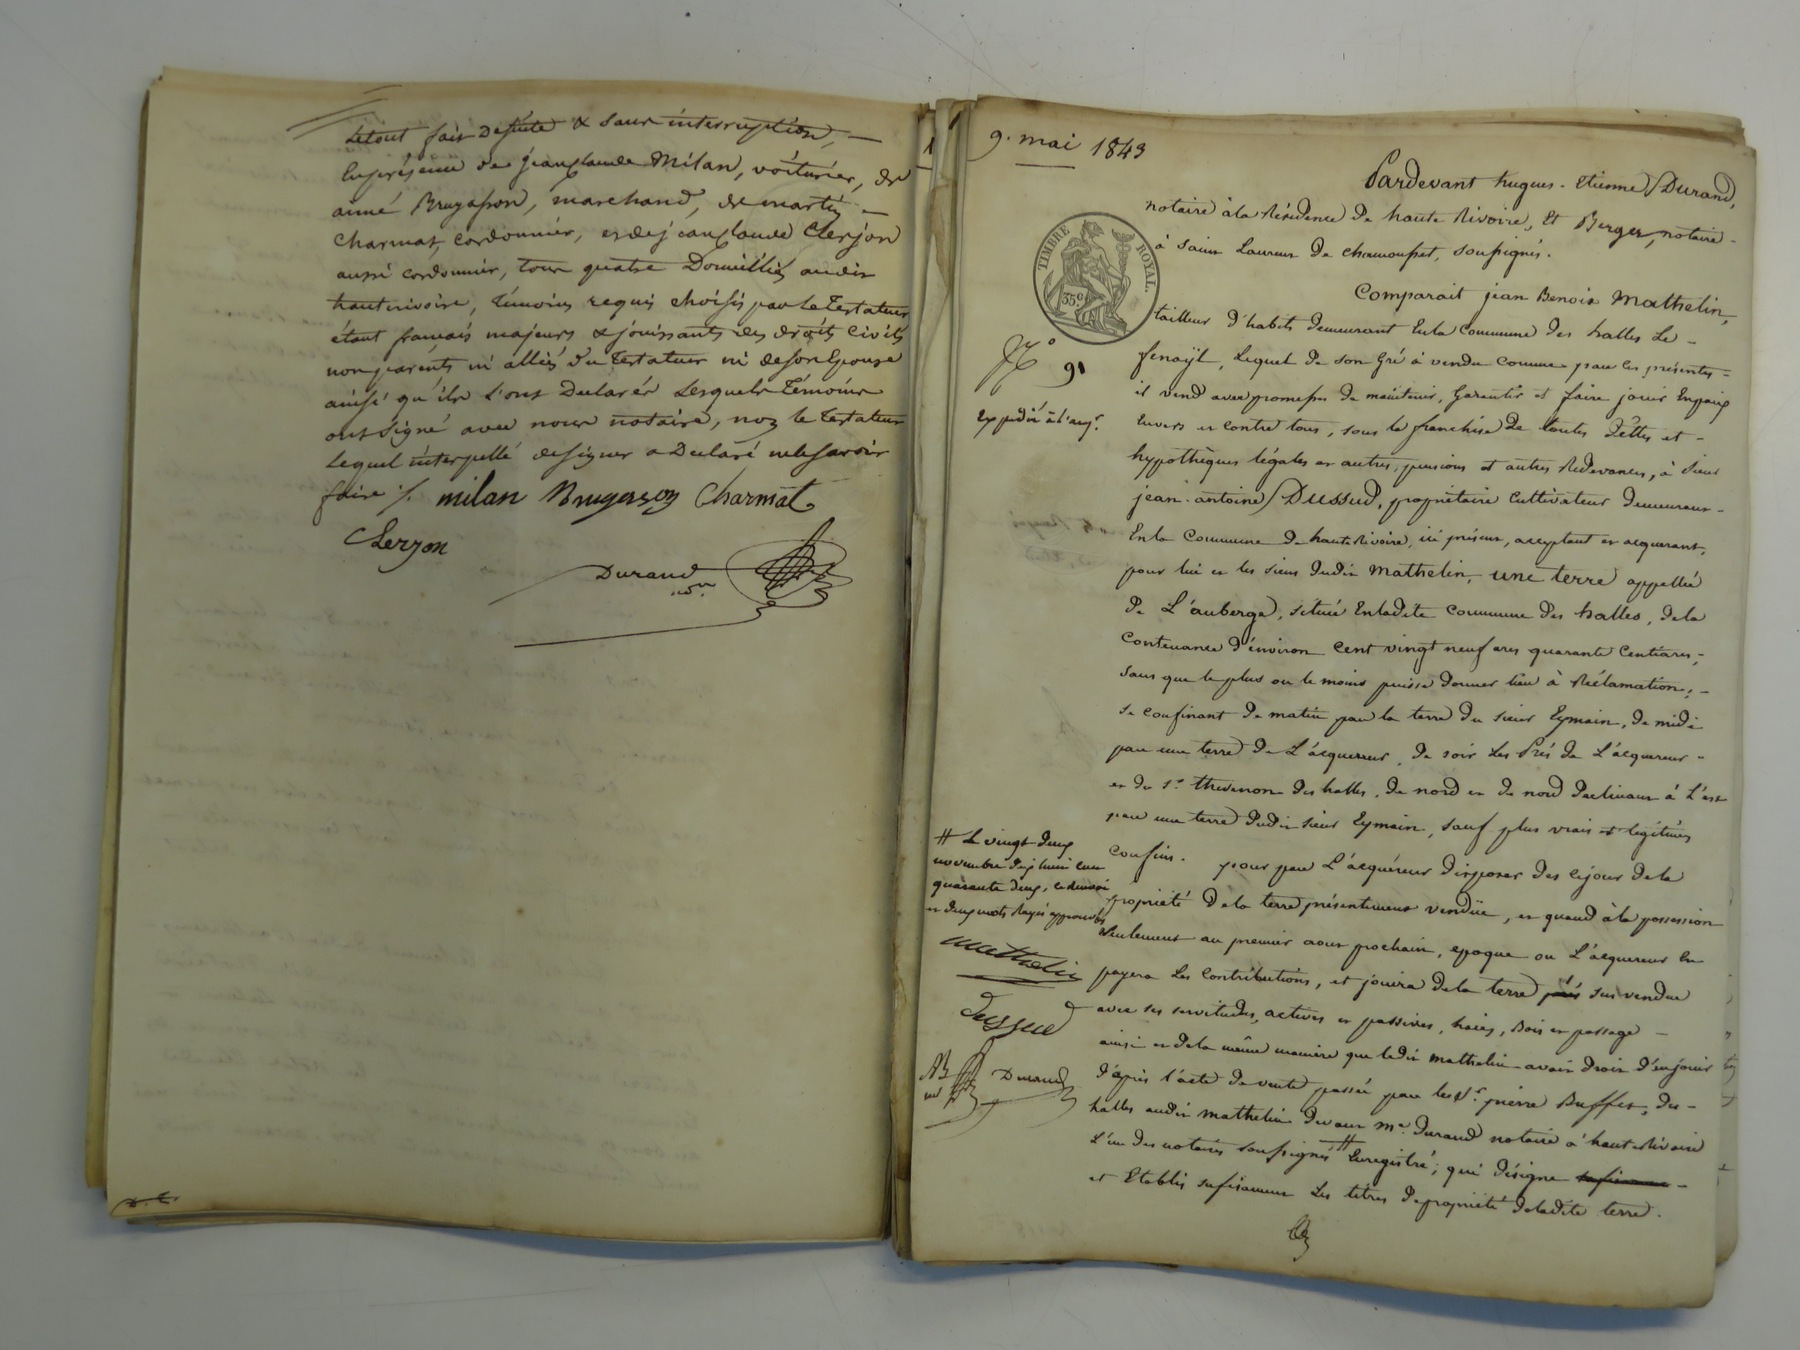 Letout fait desuite & sans interruption, —
Enprésence de jeanclaude Milan, voiturier, de
aimé Brugasson, marchand, de martin —
Charmat, cordonnier, et de jeanclaude Clerjon
aussi cordonnier, tous quatre Domiciliés audit
hauterivoire, témoins requis choisis par le testateur
étant français majeurs & jouissants des droits Civils
non parents ni alliés du testateur ni deson Epouse
ainsi qu'ils L'ont Declaré Lesquels témoins
ont signé avec nous notaire, non le testateur
Lequel interpellé designer a Declaré nelesavoir
faire ./. milan Brugasson Charmat
Clerjon
Durand
1
9. mai 1843
Pardevant hugues-Etienne Durand,
notaire à la Résidence de haute Rivoire, Et Berger, notaire
à Saint Laurent de chamousset, soussignés.
TIMBRE ROYAL.
35c
Comparait jean Benoit Mathelin,
tailleur d'habits demeurant Enla Commune des halles Le —
fenoÿl, Lequel de son Gré à vendu comme par les présentes —
N° 91
il vend avec promesse de maintenir, Garentir et faire jouir Enpaix
Envers et contre tous, sous la franchise de toutes dettes et —
hypothèques légales et autres, pensions et autres Redevances, à sieur
jean-antoine Dussud, propriétaire Cultivateur demeurant —
Enla Commune de haute Rivoire, ici présent, acceptant et acquerant,
pour lui et les siens dudit Mathelin, une terre appellée
de L'auberge, située Enladite Commune des halles, dela
Contenance d'environ cent vingt neuf ares quarante Centiares,
sans que le plus ou le moins puisse donner lieu à Réclamation; —
se confinant de matin par la terre du sieur Eymain, de midi
par une terre de L'acquereur, de soir les Prés de L'acquereur —
et du Sr. thevenon des halles, de nord et de nord declinant à L'est
par une terre dudit sieur Eymain, sauf plus vrais et legitimes
confins. pour par L'acquéreur disposer des cejour dela
# Le vingt deux
novembre dix huit cent
quarante deux,
et deux mots Rayés approuvés
propriété dela terre présentement vendüe, et quand à la possession
seulement au premier aout prochain, epoque ou L'acquereur En
payera les Contributions, et jouira dela terre sus vendue
avec ses servitudes, actives et passives, haies, Bois et passage —
ainsi et dela même manière que ledit mathelin avait droit d'enjouir
d'après l'acte de vente passée par le Sr. pierre Buffet, des —
halles audit mathelin devant Me. Durand notaire à haute Rivoire
L'un des notaires soussignés # Enregistré; qui désigne
et Etablis sufisament Les titres depropriété deladite terre.
mathelin
Dussud
Durand